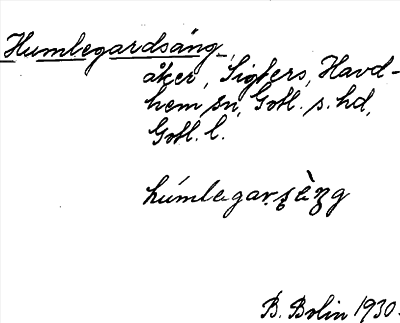 Humlegardsäng,
åker, Sigters, Havd-
hem sn, Gotl. s. hd,
Gotl. l.
B. Bolin 1930.